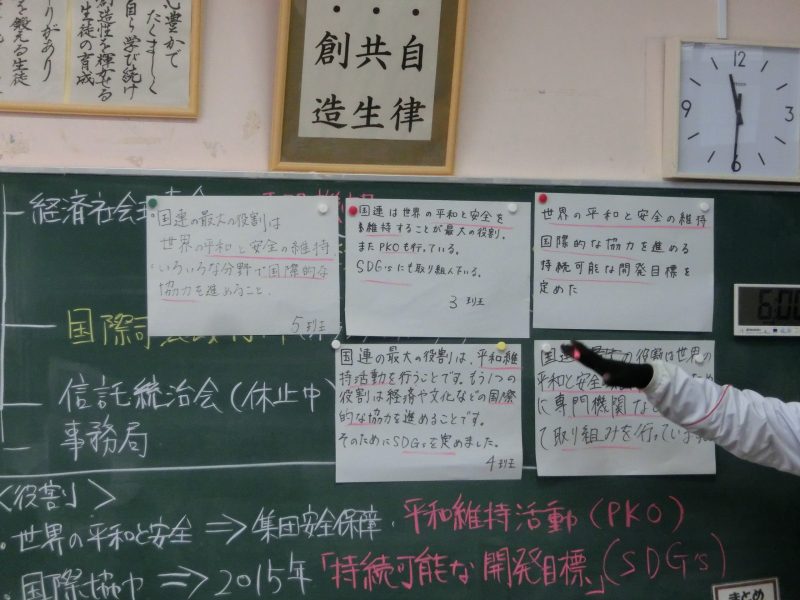 心豊かで
たくましく
自ら学び続け
創造性を輝かせる
生徒の育成
りがあり
を鍛える生徒
自律
共生
創造
12
3
6
9
経済社会
国連の最大の役割は
世界の平和と安全の維持
・いろいろな分野で国際的な
協力を進めること。
5班
国連は世界の平和と安全を
維持することが最大の役割。
またPKOも行っている。
SDG'sにも取り組んでいる。
3班
世界の平和と安全の維持
国際的な協力を進める
持続可能な開発目標を
定めた
6:00
国際司
信託統治会(休止中)
事務局
国連の最大の役割は、平和維
持活動を行うことです。もう1つの
役割は経済や文化などの国際
的な協力を進めることです。
そのためにSDGsを定めました。
4班
国連
の役割は世界の
平和と安全
に専門機関な
て取り組みを行っていま
<役割>
・世界の平和と安全⇒集団安全保障・平和維持活動(PKO)
・国際協力⇒2015年「持続可能な開発目標」(SDG's)
まとめ